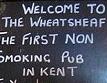 WELCOME TO
THE WHEATSHEAF
THE FIRST NON
SMOKING PUB
IN KENT